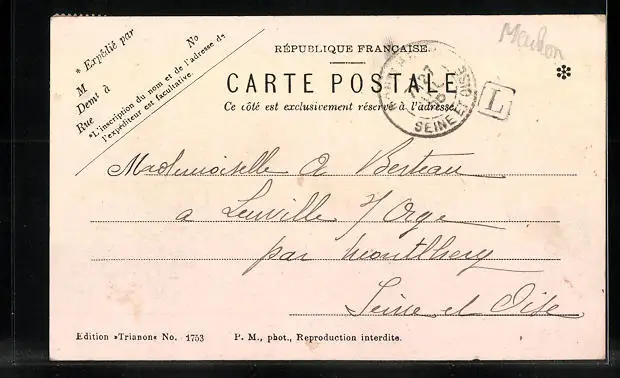 Meudon
* Expédié par
No
M
Demt à
Rue
*L'inscription du nom et de l'adresse de
l'expéditeur est facultative.
RÉPUBLIQUE FRANÇAISE.
CARTE POSTALE
Ce côté est exclusivement réservé à l'adresse.
SEINE ET OISE
L
Mademoiselle A Berteau
a Leuville s/ Orge
par Montlhery
Seine et Oise
Edition »Trianon« No. 1753 P. M., phot., Reproduction interdite.